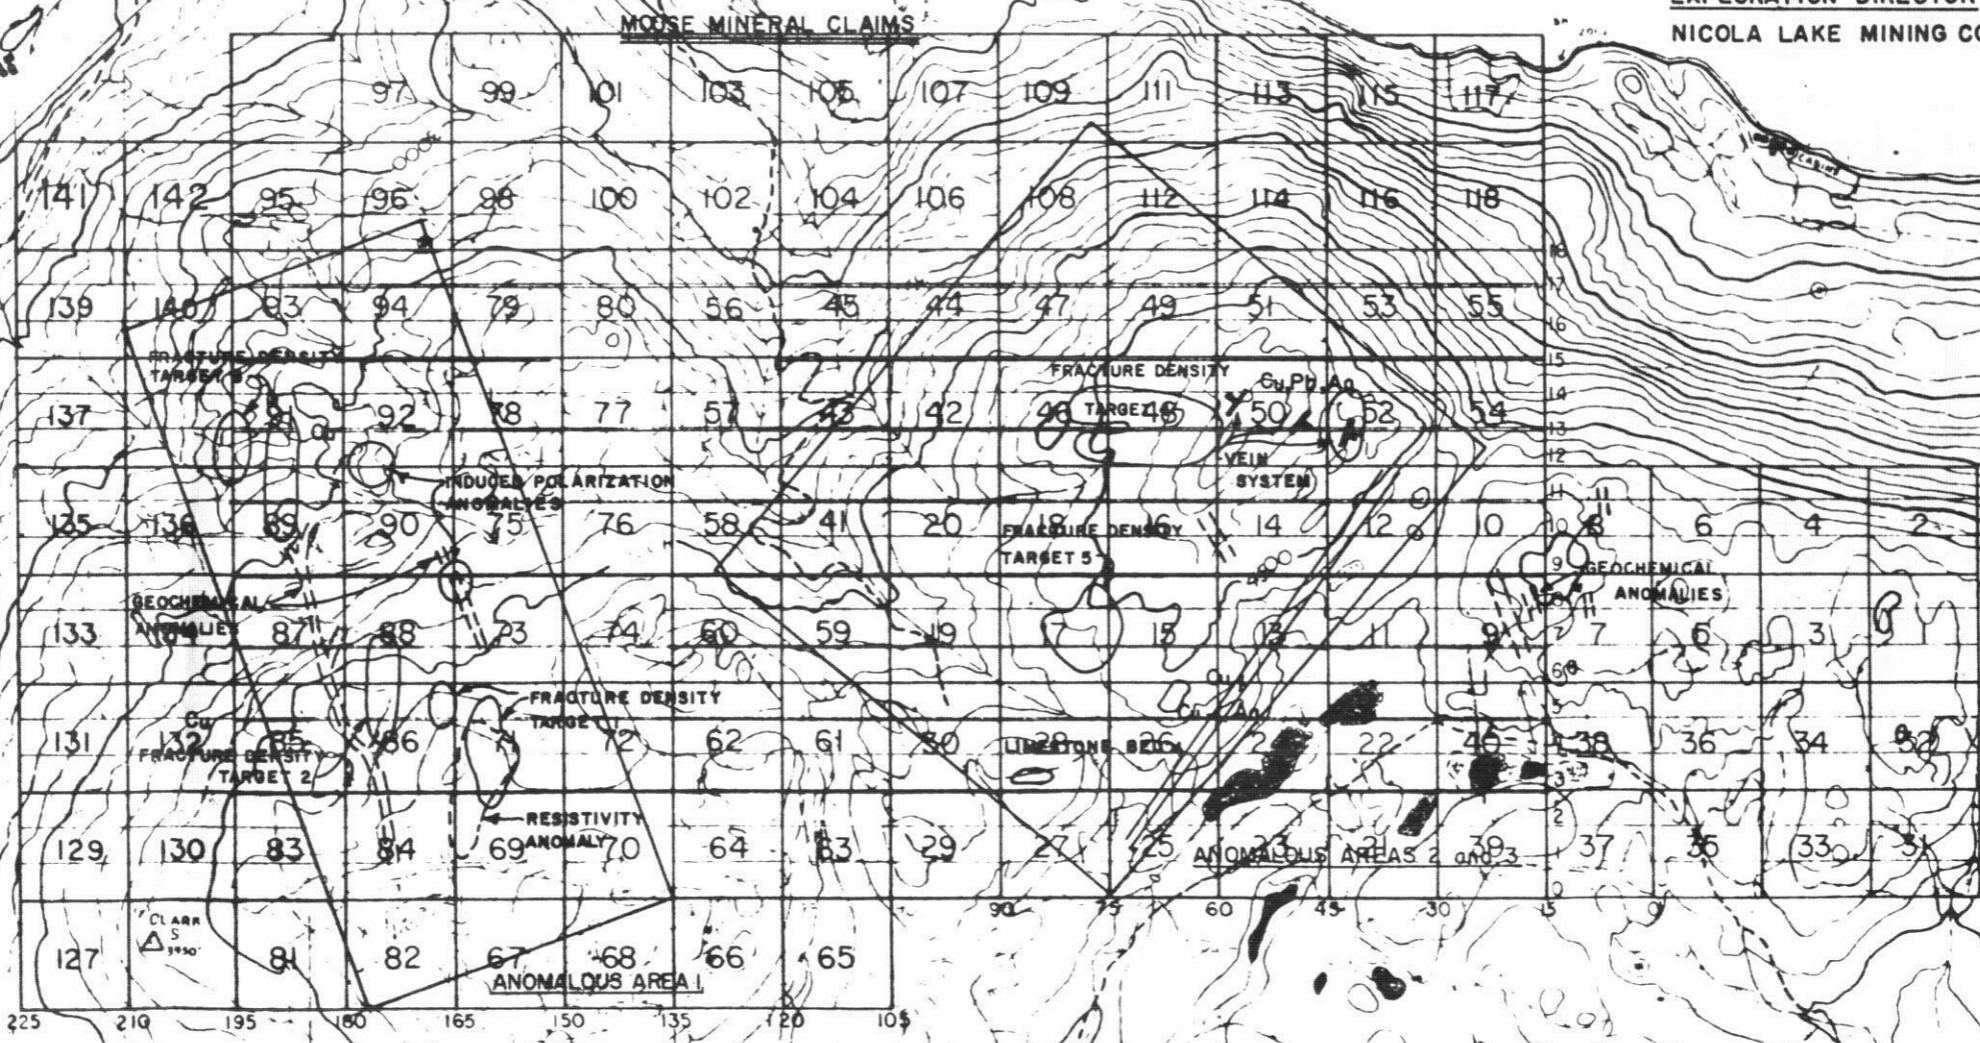 MOUSE MINERAL CLAIMS
EXPLORATION DIRECTOR
NICOLA LAKE MINING CO
97 99 101 103 105 107 109 111 113 115 117
141 142 95 96 98 100 102 104 106 108 112 114 116 118
18
17
139 140 93 94 79 80 56 45 44 47 49 51 53 55
16
15
FRACTURE DENSITY
TARGET 3
FRACTURE DENSITY
TARGET 4
Cu, Pb, Ag
14
137 91 92 78 77 57 43 42 46 48 50 52 54
13
Cu
12
VEIN
SYSTEM
INDUCED POLARIZATION
ANOMALIES
11
135 136 89 90 75 76 58 41 20 18 16 14 12 10 8 6 4 2
10
FRACTURE DENSITY
TARGET 5
4500
9
GEOCHEMICAL
ANOMALIES
GEOCHEMICAL
ANOMALIES
8
133 134 87 88 73 74 60 59 19 17 15 13 11 9 7 5 3 1
7
6
FRACTURE DENSITY
TARGET 1
5
Cu
131 132 85 86 71 72 62 61 30 28 26 24 22 40 38 36 34 32
4
FRACTURE DENSITY
TARGET 2
LIMESTONE BED
3
2
RESISTIVITY
ANOMALY
129 130 83 84 69 70 64 63 29 27 25 23 39 37 35 33 31
ANOMALOUS AREAS 2 and 3
1
0
90 75 60 45 30 15 0
CLARK
S
3950'
127 81 82 67 68 66 65
ANOMALOUS AREA 1
225 210 195 180 165 150 135 120 105